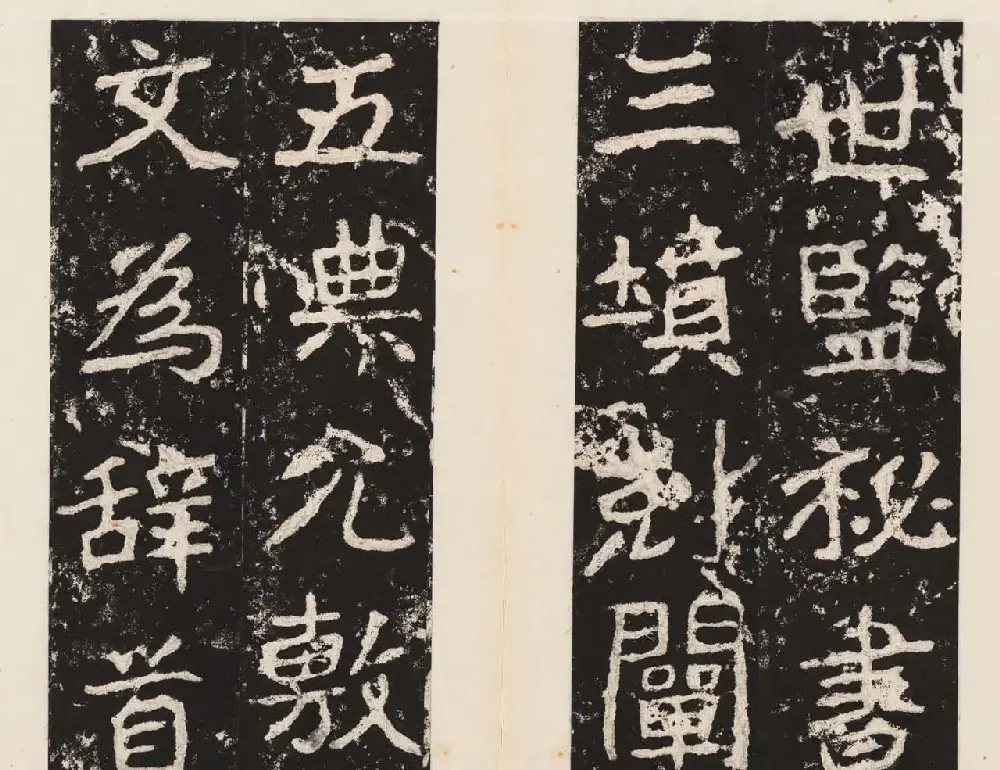 世監秘書
三墳剋闡
五典允敷
文為辭首